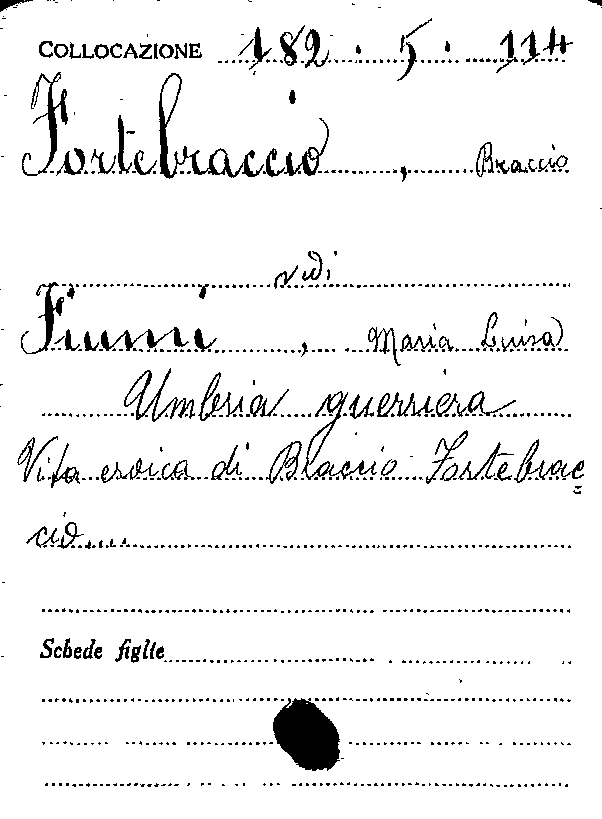 COLLOCAZIONE 182.5.114
Fortebraccio, Braccio
vedi
Fiumi, Maria Luisa
Umbria guerriera
Vita eroica di Braccio Fortebrac=
cio....
Schede figlie